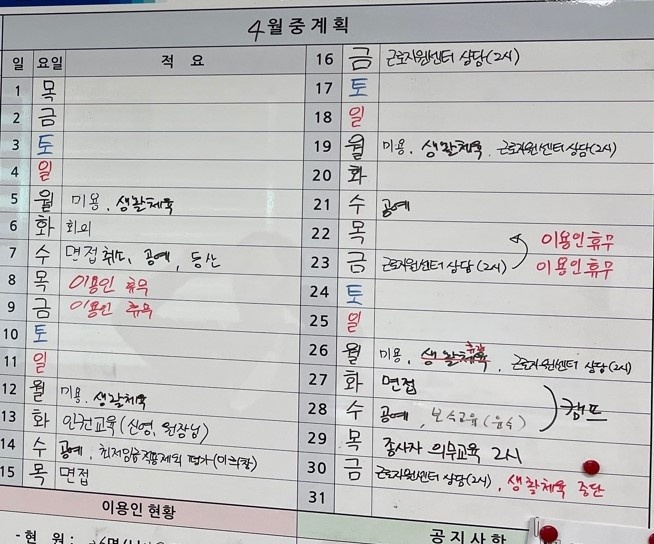 4월중계획
일 요일 적 요
1 목
2 금
3 토
4 일
5 월 미용, 생활체육
6 화 회의
7 수 면접 취도, 공예, 등산
8 목 이용인 휴무
9 금 이용인 휴무
10 토
11 일
12 월 미용, 생활체육
13 화 인권교육(신영, 원장님)
14 수 공예, 최저임금적용제외 평가
15 목 면접
16 금 근로지원센터 상담(2시)
17 토
18 일
19 월 미용, 생활체육, 근로지원센터 상담(2시)
20 화
21 수 공예
22 목 이용인휴무
23 금 근로지원센터 상담(2시) 이용인휴무
24 토
25 일
26 월 미용, 생활체육 휴강, 근로지원센터 상담(2시)
27 화 면접
28 수 공예, 보수교육 캠프
29 목 종사자 의무교육 2시
30 금 근로지원센터 상담(2시), 생활체육 중단
31
이용인현황
공지사항
- 현 원: